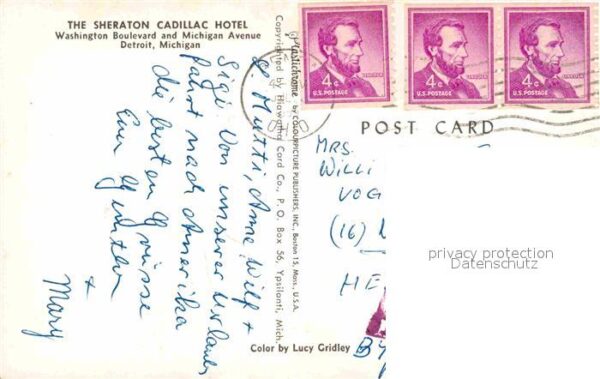 THE SHERATON CADILLAC HOTEL
Washington Boulevard and Michigan Avenue
Detroit, Michigan
L. Mutti, Anne, Wilf +
Sigi. Von unserer Urlaubs
fahrt nach Amerika
die besten Grüsse
Eure Günter
+
Mary
Plastichrome by COLOURPICTURE PUBLISHERS, INC., Boston 15, Mass., U.S.A.
Copyrighted by Hiawatha Card Co., P.O. Box 56, Ypsilanti, Mich.
Color by Lucy Gridley
4¢
LINCOLN
U.S. POSTAGE
4¢
LINCOLN
U.S. POSTAGE
4¢
LINCOLN
U.S. POSTAGE
POST CARD
MRS.
WILLI
VOG
(16)
HE
privacy protection
Datenschutz